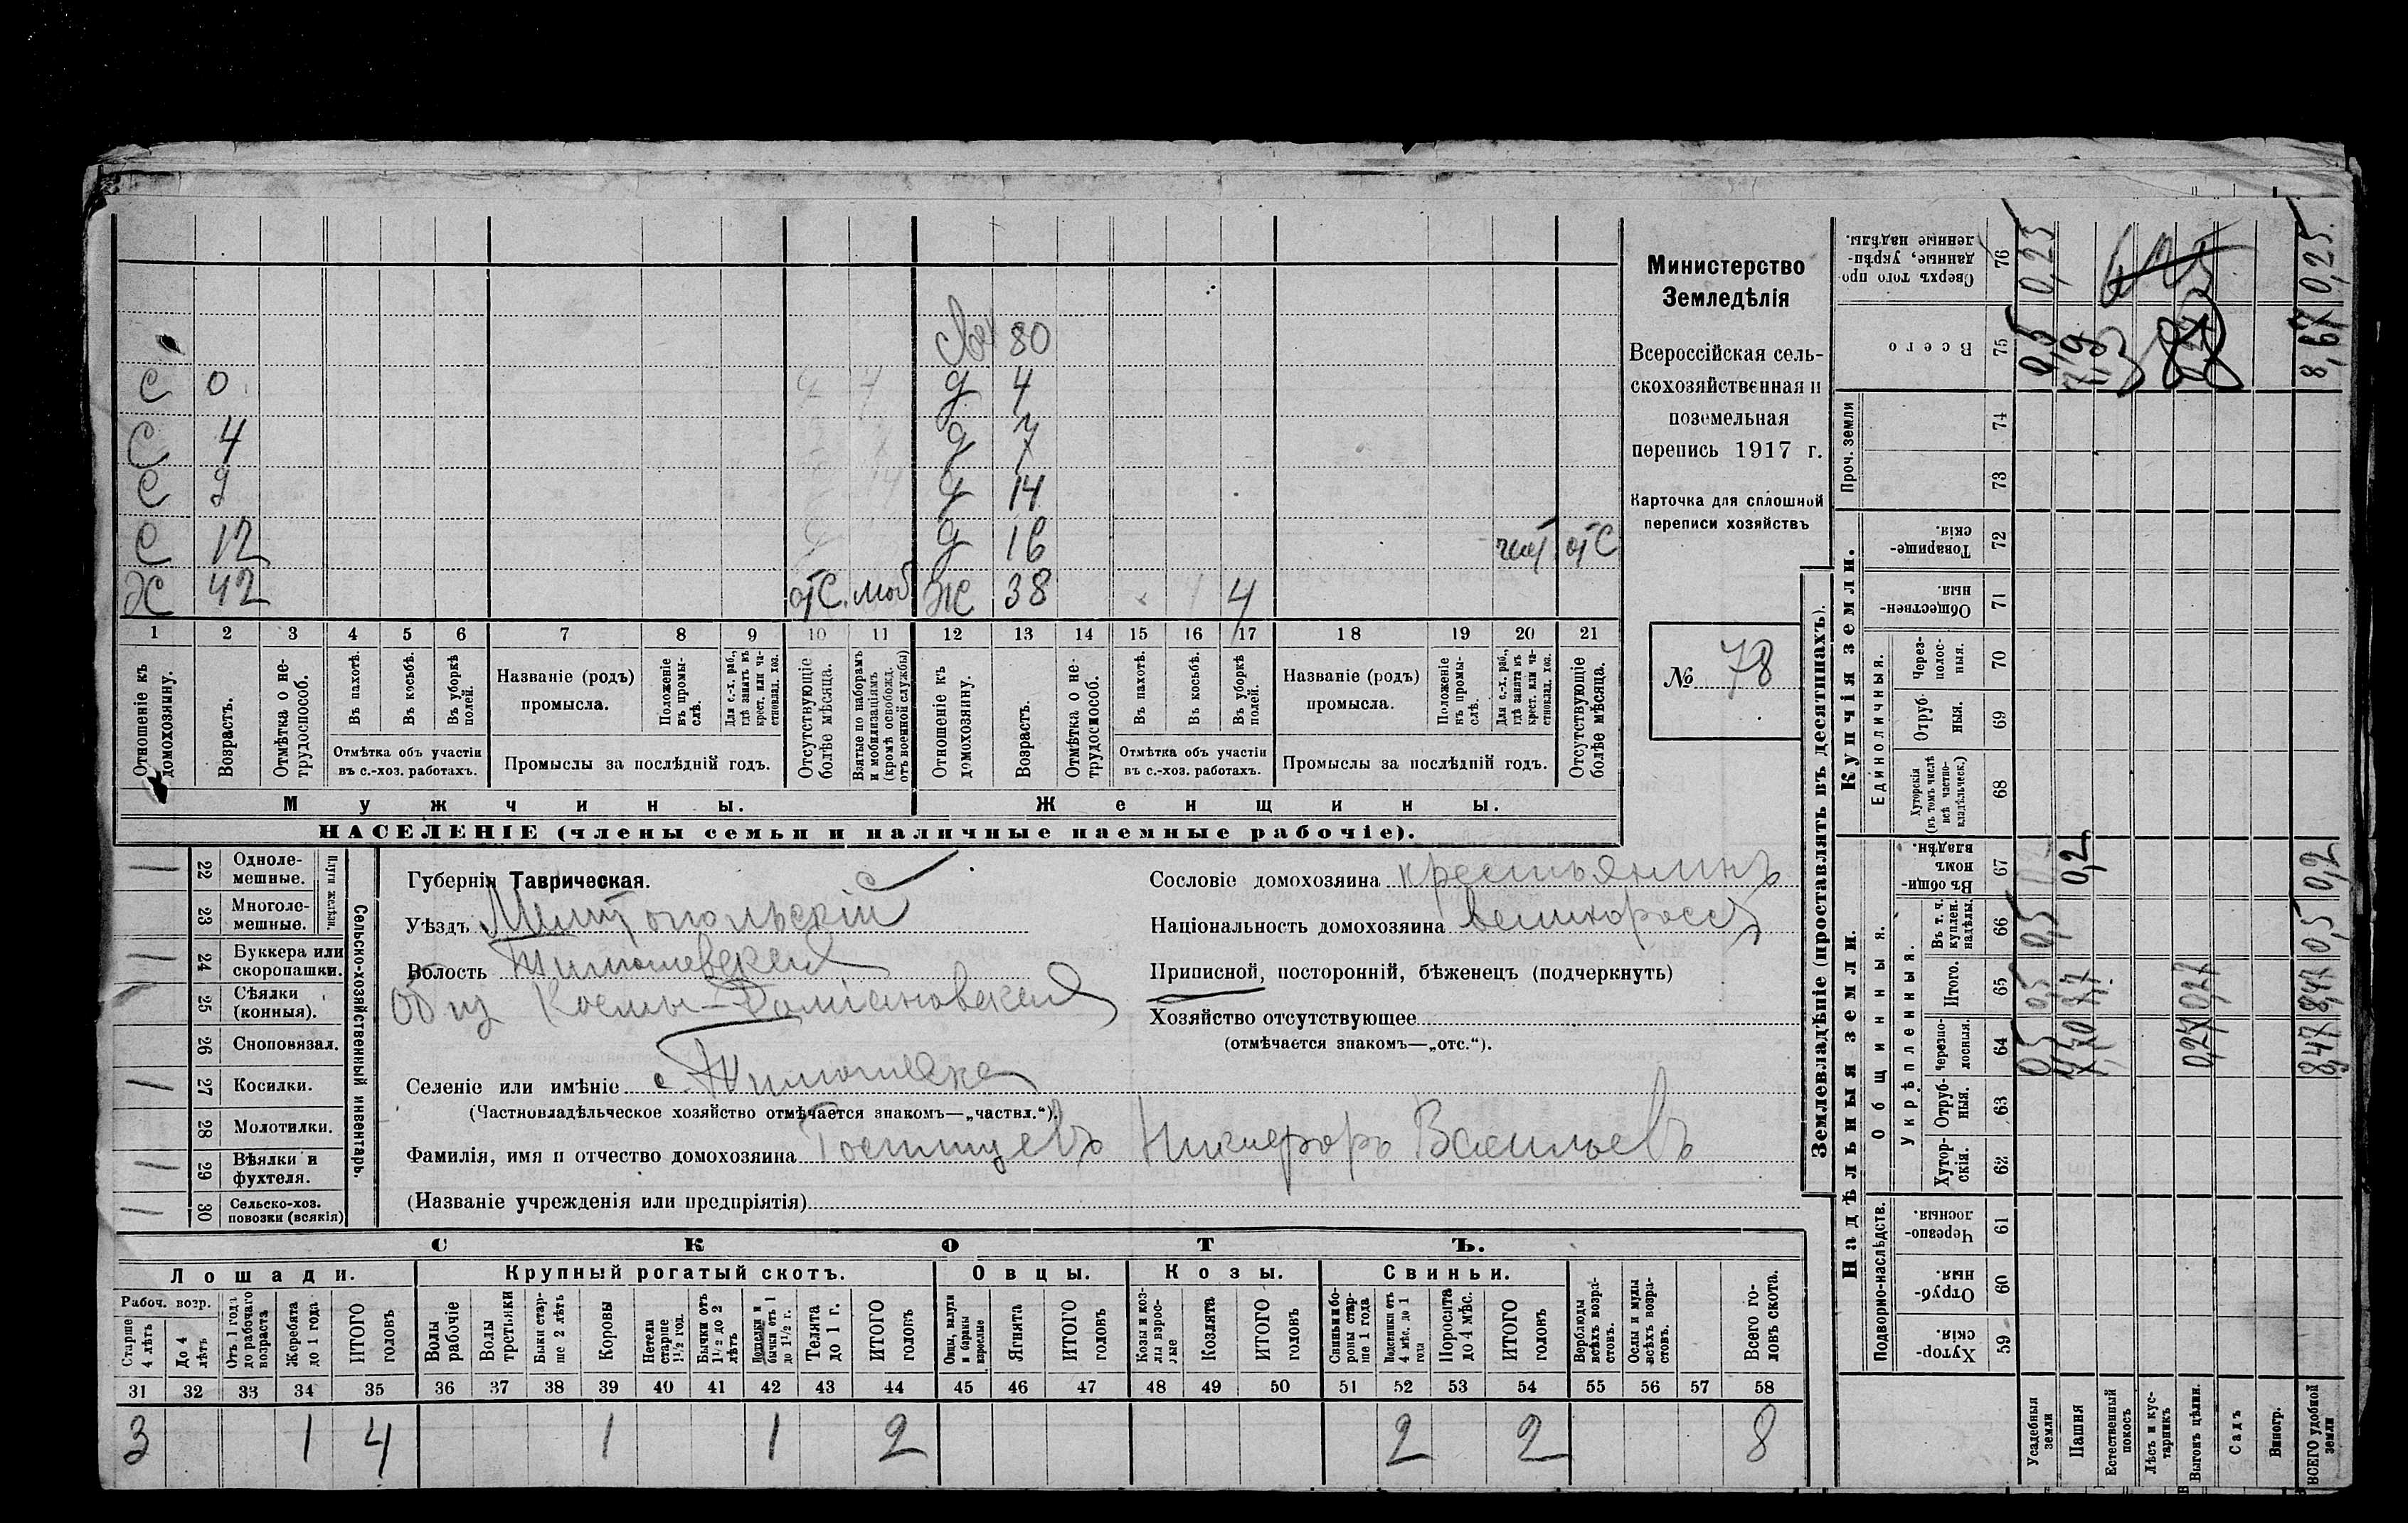 Министерство
Земледѣлія
Всероссійская сель-
скохозяйственная и
поземельная
перепись 1917 г.
Карточка для сплошной
переписи хозяйствъ
№ 78
80
С 0 д 4
С 4 д 7
С 9 д 14
С 12 д 16 отС
Х 42 отС. моб Ж 38 4
1 2 3 4 5 6 7 8 9 10 11 12 13 14 15 16 17 18 19 20 21
Отношеніе къ домохозяину.
Возрастъ.
Отмѣтка о не-трудоспособ.
Въ пахотѣ.
Въ косьбѣ.
Въ уборкѣ полей.
Отмѣтка объ участіи
въ с.-хоз. работахъ.
Названіе (родъ)
промысла.
Положеніе въ промы-слѣ.
Для с.-х. раб., гдѣ занятъ въ крест. или ча-стновлад. хоз.
Промыслы за послѣдній годъ.
Отсутствующіе болѣе мѣсяца.
Взятые по наборамъ и мобилизаціямъ (кромѣ освобожд. отъ военной службы)
Отношеніе къ домохозяину.
Возрастъ.
Отмѣтка о не-трудоспособ.
Въ пахотѣ.
Въ косьбѣ.
Въ уборкѣ полей.
Отмѣтка объ участіи
въ с.-хоз. работахъ.
Названіе (родъ)
промысла.
Положеніе въ промы-слѣ.
Для с.-х. раб., гдѣ занята въ крест. или ча-стновлад. хоз.
Промыслы за послѣдній годъ.
Отсутствующіе болѣе мѣсяца.
Мужчины. Женщины.
НАСЕЛЕНІЕ (члены семьи и наличные наемные рабочіе).
Сельско-хозяйственный инвентарь.
Плуги желѣзн.
22 Одноле-мешные.
23 Многоле-мешные.
24 Буккера или скоропашки.
25 Сѣялки (конныя).
26 Сноповязал.
27 Косилки.
28 Молотилки.
29 Вѣялки и фухтеля.
30 Сельско-хоз. повозки (всякія)
Губернія Таврическая.
Уѣздъ Мелитопольскій
Волость Тимошевская
Общ Космы-Даміановская
Селеніе или имѣніе с. Тимошевка
(Частновладѣльческое хозяйство отмѣчается знакомъ—„частвл.“).
Фамилія, имя и отчество домохозяина Гостищевъ Никифоръ Васильевъ
(Названіе учрежденія или предпріятія)
Сословіе домохозяина крестьянинъ
Національность домохозяина великороссъ
Приписной, посторонній, бѣженецъ (подчеркнуть)
Хозяйство отсутствующее
(отмѣчается знакомъ—„отс.“).
СКОТЪ.
Лошади. Крупный рогатый скотъ. Овцы. Козы. Свиньи.
Рабоч. возр.
Старше 4 лѣтъ
До 4 лѣтъ
Отъ 1 года до рабочаго возраста
Жеребята до 1 года
ИТОГО головъ
Волы рабочіе
Волы третьяки
Быки стар-ше 2 лѣтъ
Коровы
Нетели старше 1½ год.
Бычки отъ 1½ до 2 лѣтъ
Подтелки и бычки отъ 1 до 1½ г.
Телята до 1 г.
ИТОГО головъ
Овцы, валухи и бараны взрослые
Ягнята
ИТОГО головъ
Козы и коз-лы взрос-лые
Козлята
ИТОГО головъ
Свиньи и бо-ровы стар-ше 1 года
Подсвинки отъ 4 мѣс. до 1 года
Поросята до 4 мѣс.
ИТОГО головъ
Верблюды всѣхъ возра-стовъ.
Ослы и мулы всѣхъ возра-стовъ.
Всего го-ловъ скота.
31 32 33 34 35 36 37 38 39 40 41 42 43 44 45 46 47 48 49 50 51 52 53 54 55 56 57 58
3 1 4 1 1 2 2 2 8
Землевладѣніе (проставлять въ десятинахъ).
Надѣльныя земли. Купчія земли. Проч. земли
Подворно-наслѣдств. Общинныя. Укрѣпленныя. Единоличныя.
Хутор-скія. 59
Отруб-ныя. 60
Черезпо-лосныя. 61
Хутор-скія. 62
Отруб-ныя. 63
Черезпо-лосныя. 64
Итого. 65
Въ т. ч. куплен. надѣлы. 66
Въ общи-номъ владѣн. 67
Хуторскія (въ томъ числѣ всѣ частно-владѣльческ.) 68
Отруб-ныя. 69
Через-полос-ныя. 70
Обществен-ныя. 71
Товарище-скія. 72
73
74
Всего 75
Сверхъ того про-данные, укрѣп-ленные надѣлы. 76
Усадебныя земли 0,5 0,5 0,5 0,5 0,25
Пашня 7,7 0,2 7,9
Естественный покосъ
Лѣсъ и кус-тарникъ
Выгонъ цѣлин. 0,27 0,27
Садъ
Виногр.
ВСЕГО удобной земли 8,47 8,47 0,5 0,2 8,67 0,25